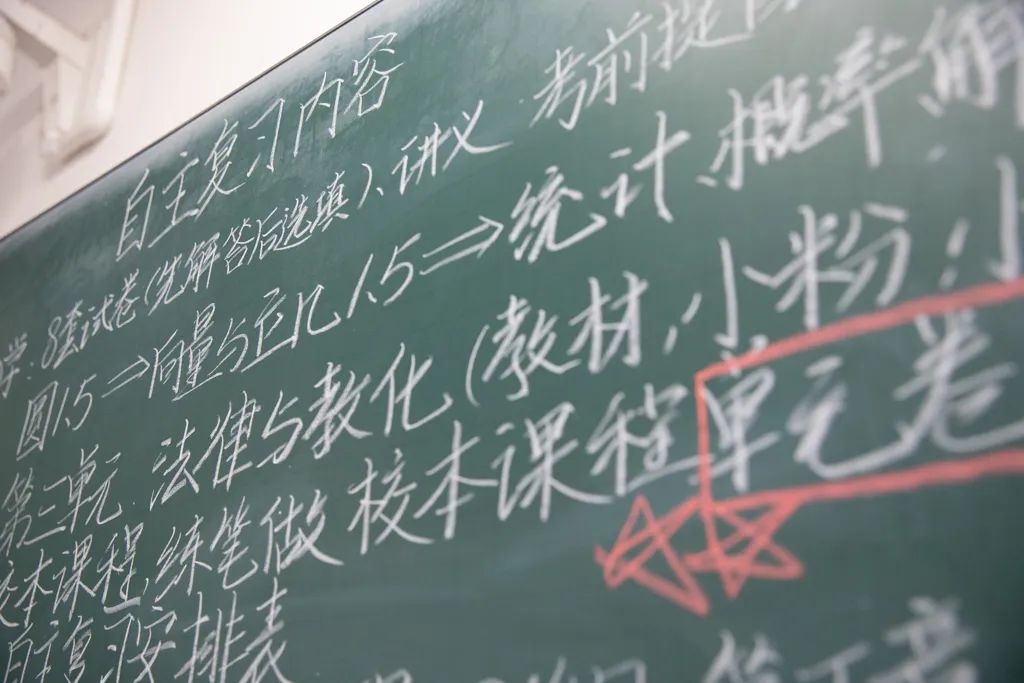 自主复习内容
学:8套试卷(先解答后选填)、讲义 考前提
圆1.5⇒向量与立几1.5⇒统计、概率、解
第二单元.法律与教化(教材,小粉,小
校本课程,练笔做校本课程单元卷
自主复习安排表